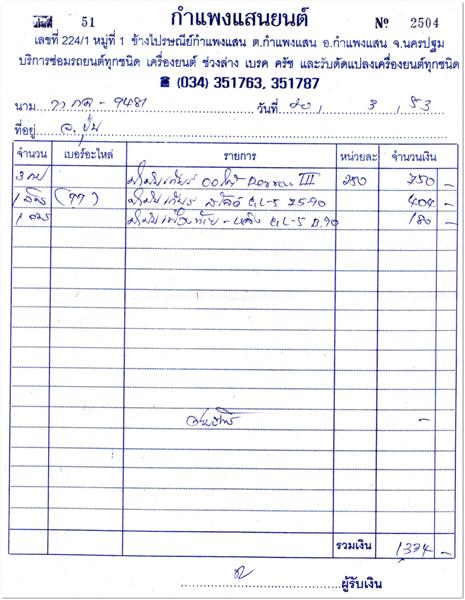 เล่มที่ 51 กำแพงแสนยนต์ № 2504
เลขที่ 224/1 หมู่ที่ 1 ข้างไปรษณีย์กำแพงแสน ต.กำแพงแสน อ.กำแพงแสน จ.นครปฐม
บริการซ่อมรถยนต์ทุกชนิด เครื่องยนต์ ช่วงล่าง เบรค ครัช และรับดัดแปลงเครื่องยนต์ทุกชนิด
☎ (034) 351763, 351787
นาม - 9481 วันที่ 20 / 3 / 53
ที่อยู่ อ. ปุ่น
จำนวน เบอร์อะไหล่ รายการ หน่วยละ จำนวนเงิน
3 น้ำมันเกียร์ ออโต้ III 250 750 -
1 ลิตร น้ำมันเกียร์ GL-5 75-90 404 -
1 ลิตร น้ำมันเฟืองท้าย - หลัง GL-5 B.90 180 -
-
รวมเงิน 1334 -
ผู้รับเงิน